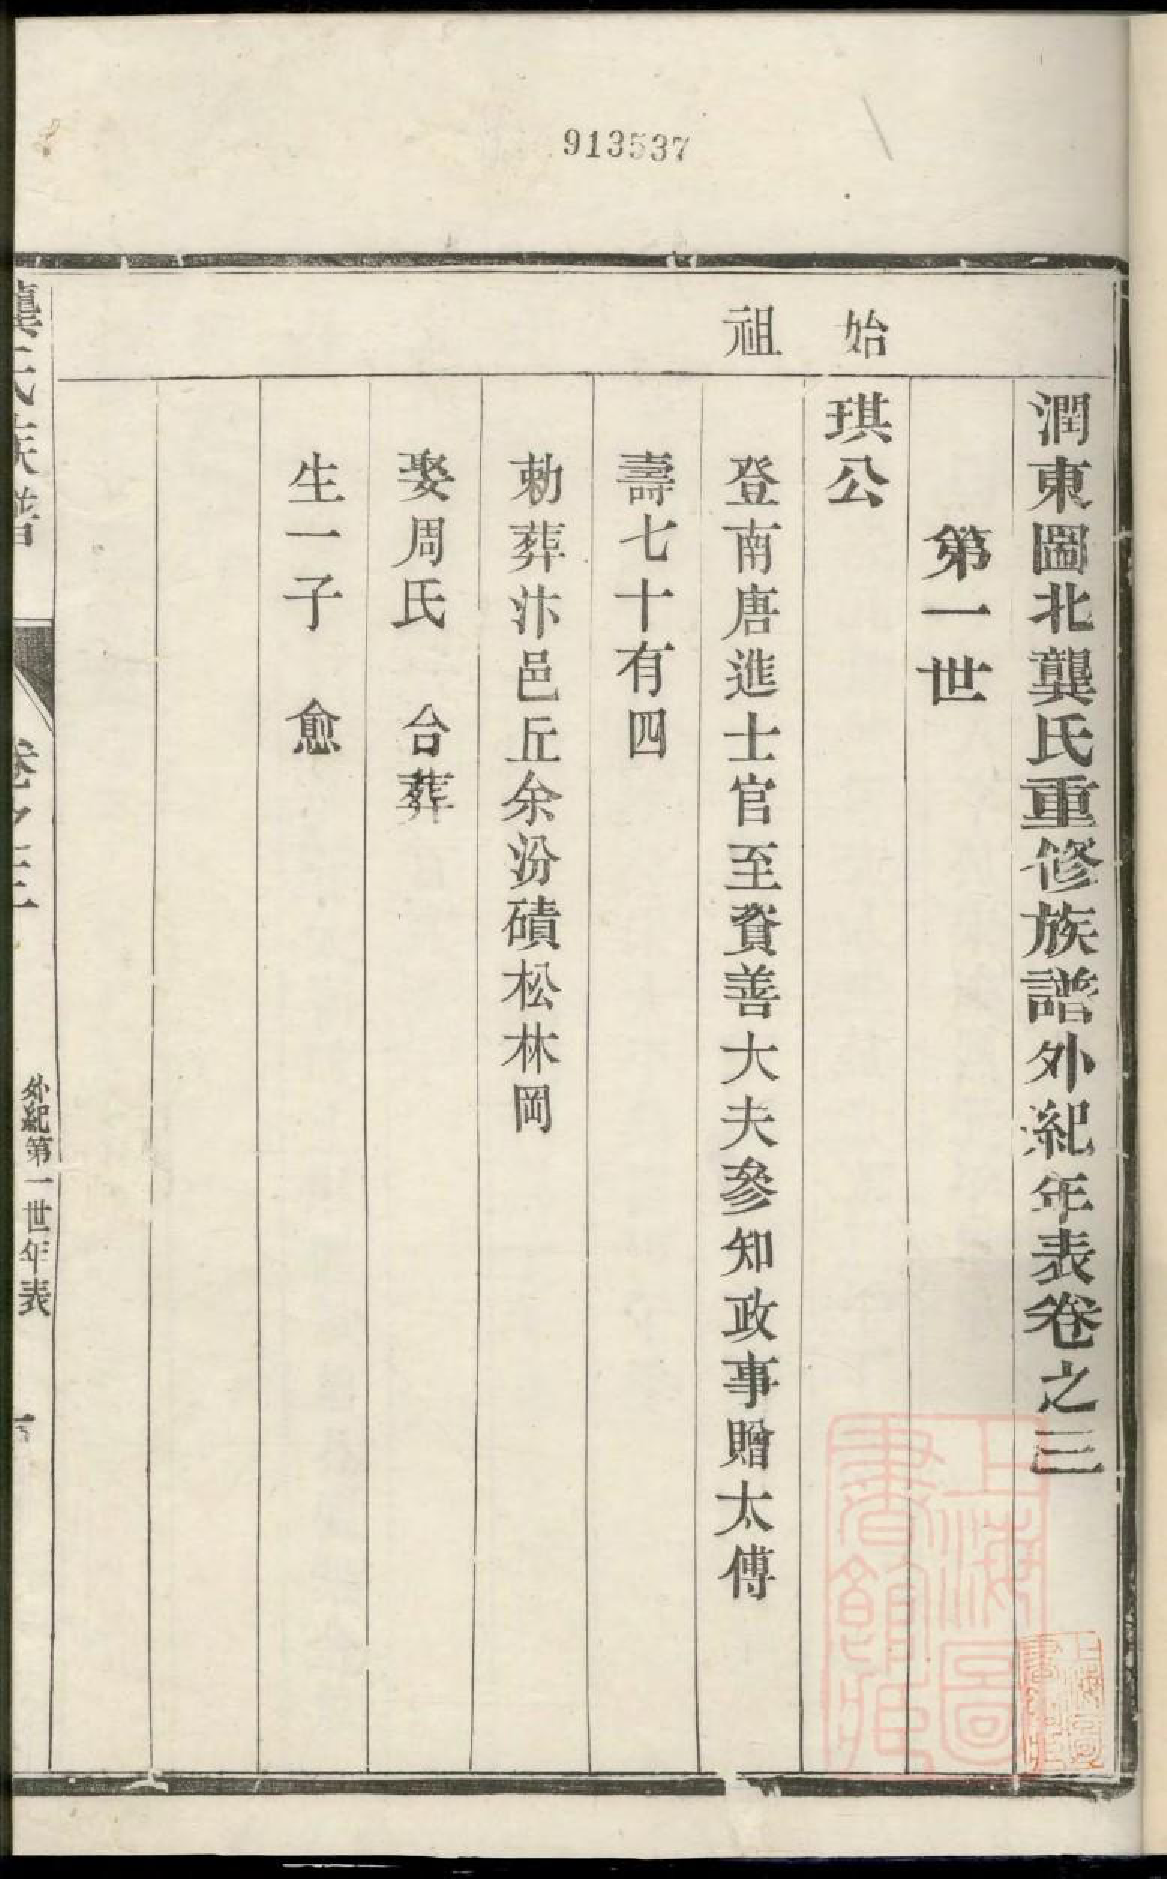 913537
潤東圌北龔氏重修族譜外紀年表卷之三
第一世
始祖
琪公
登南唐進士官至資善大夫參知政事贈太傅
壽七十有四
勅葬汴邑丘余汾磧松林岡
娶周氏 合葬
生一子 愈
龔氏族譜
卷之三
外紀第一世年表
上海圖書館藏
上海圖書館藏